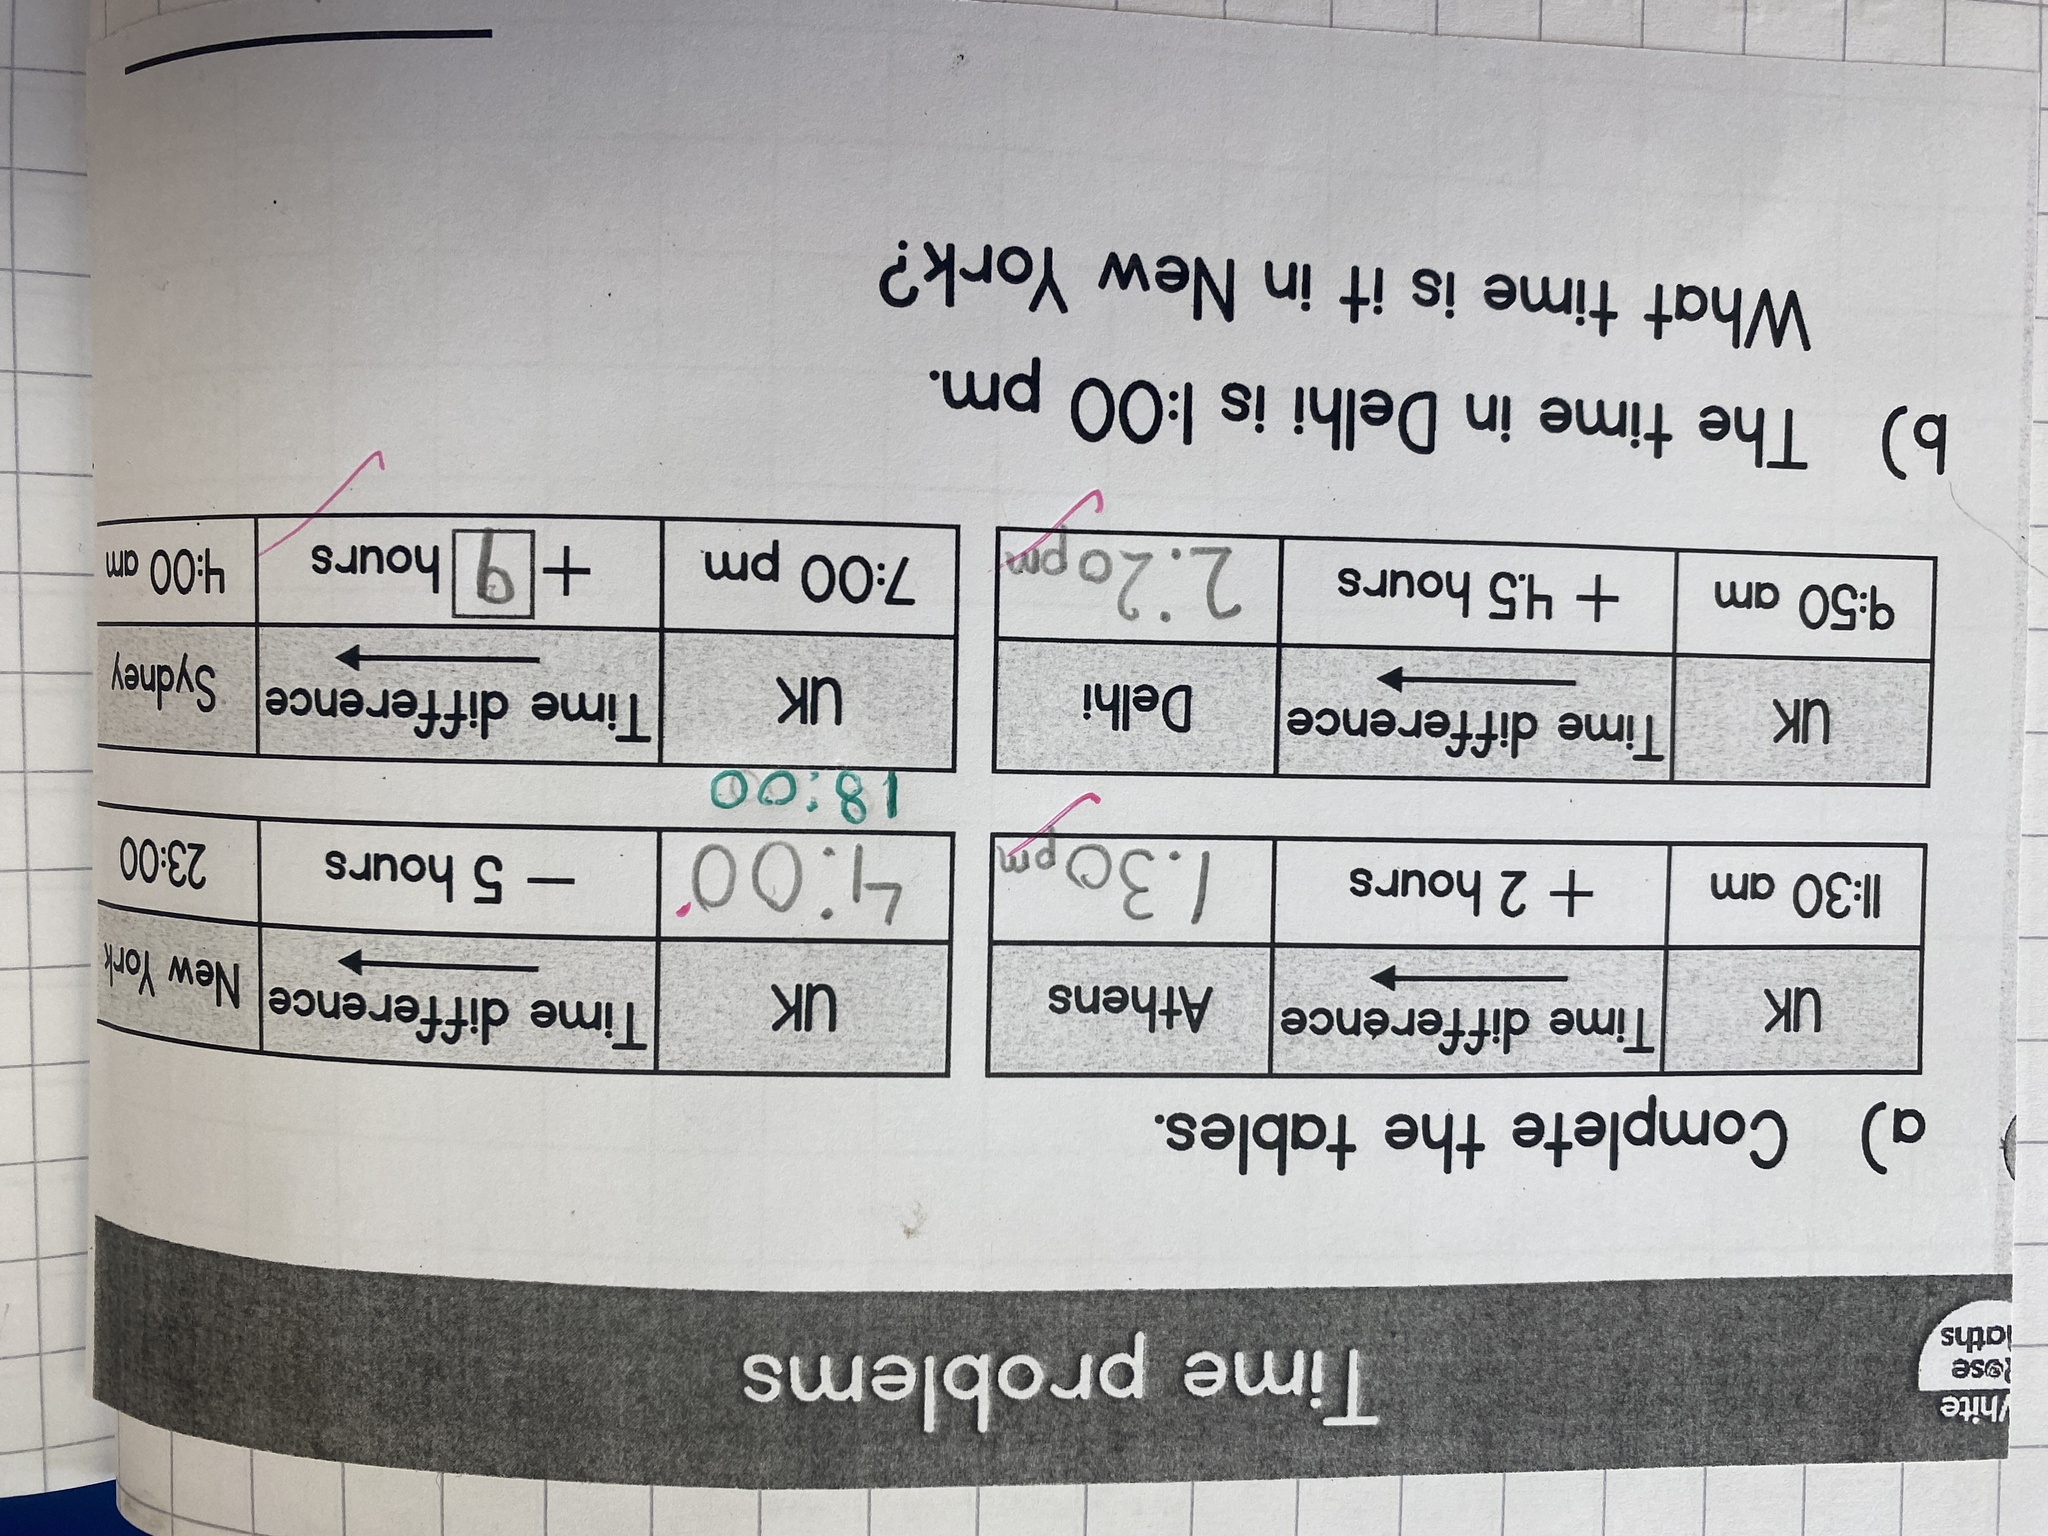 White
Rose
Maths
Time problems
a) Complete the tables.
UK Time difference Athens
11:30 am + 2 hours 1:30pm
UK Time difference New York
4:00 − 5 hours 23:00
18:00
UK Time difference Delhi
9:50 am + 4.5 hours 2:20pm
UK Time difference Sydney
7:00 pm + 9 hours 4:00 am
b) The time in Delhi is 1:00 pm.
What time is it in New York?